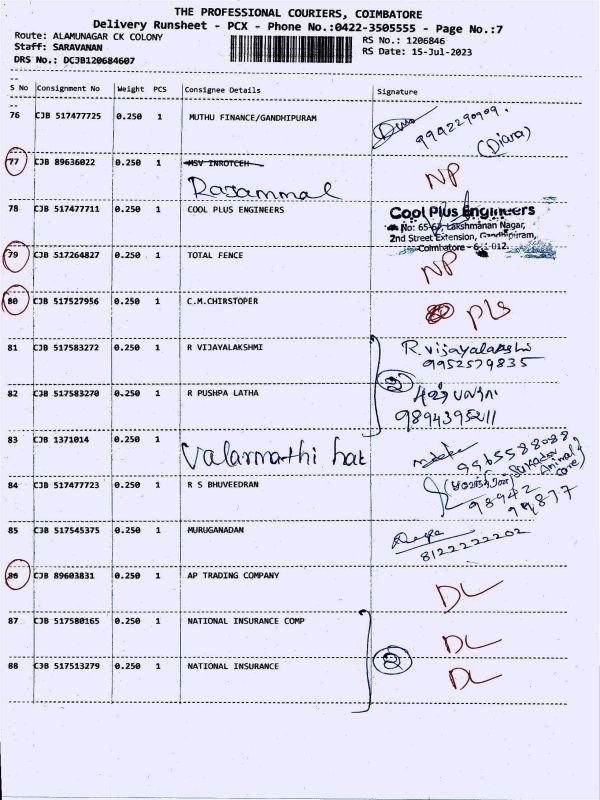 THE PROFESSIONAL COURIERS, COIMBATORE
Delivery Runsheet - PCX - Phone No.:0422-3505555 - Page No.:7
Route: ALAMUNAGAR CK COLONY
RS No.: 1206846
Staff: SARAVANAN
RS Date: 15-Jul-2023
DRS No.: DCJB120684607
S No Consignment No Weight PCS Consignee Details Signature
76 CJB 517477725 0.250 1 MUTHU FINANCE/GANDHIPURAM
9992290909.
(Diara)
77 CJB 89636022 0.250 1 MSV INROTCEH
Rajammal NP
78 CJB 517477711 0.250 1 COOL PLUS ENGINEERS
Cool Plus Engineers
No: 65-67, Lakshmanan Nagar,
2nd Street Extension, Gandhipuram,
Coimbatore - 641 012.
79 CJB 517264827 0.250 1 TOTAL FENCE NP
80 CJB 517527956 0.250 1 C.M.CHIRSTOPER PLS
81 CJB 517583272 0.250 1 R VIJAYALAKSHMI R. Vijayalakshi
9952579835
2
82 CJB 517583270 0.250 1 R PUSHPA LATHA
9894395211
83 CJB 1371014 0.250 1 Valarmathi hat
9965588088
Animal
care)
84 CJB 517477723 0.250 1 R S BHUVEEDRAN
98942
85 CJB 517545375 0.250 1 MURUGANADAN
8122222202
86 CJB 89603831 0.250 1 AP TRADING COMPANY DL
87 CJB 517580165 0.250 1 NATIONAL INSURANCE COMP DL
2
88 CJB 517513279 0.250 1 NATIONAL INSURANCE DL